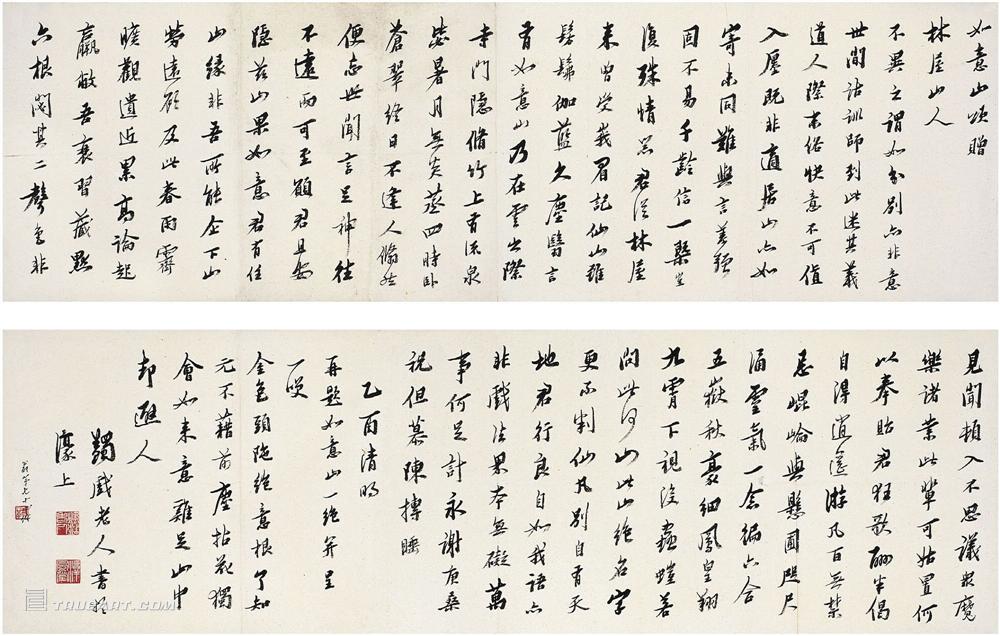 如意山頌贈
林屋山人
不異之謂如分別亦非意
世間詁訓師到此迷其義
道人際末俗快意不可值
入廛既非適居山亦如
寄未同難與言善
同不易千齡信一槩豈
復殊情器君從林屋
來曾受峩眉記仙山雖
髣髴伽藍久塵翳言
有如意山乃在雲出際
寺門隱脩竹上有流泉
毖暑月無炎蒸四時臥
蒼翠終日不逢人翛然
便忘世聞言足神往
不遠而可至願君且安
隱茲山果如意君有住
山緣非吾所能企下山
勞遠顧及此春雨霽
曠觀遺近累高論起
羸敝吾衰習藏默
六根闕其二聲色非
見聞頓入不思議與魔
樂諸業此輩可姑置何
以奉貽君狂歌酬半偈
自得逍遙游凡百無禁
忌崐崘與懸圃咫尺
涌雲氣一念徧六合
五嶽秋豪細鳳皇翔
九霄下視蟲螘若
問此何山此山絕名字
更不制仙凡別自有天
地君行良自如我語亦
非戲法果本無礙萬
事何足計永謝庚桑
祝但慕陳摶睡
乙酉清明
再題如意山一絕并呈
一咲
金色頭陁絕意根了知
元不藉前塵拈花獨
會如來意雞足山中
却遯人
蠲戲老人書於
濠上
TRUEART.COM